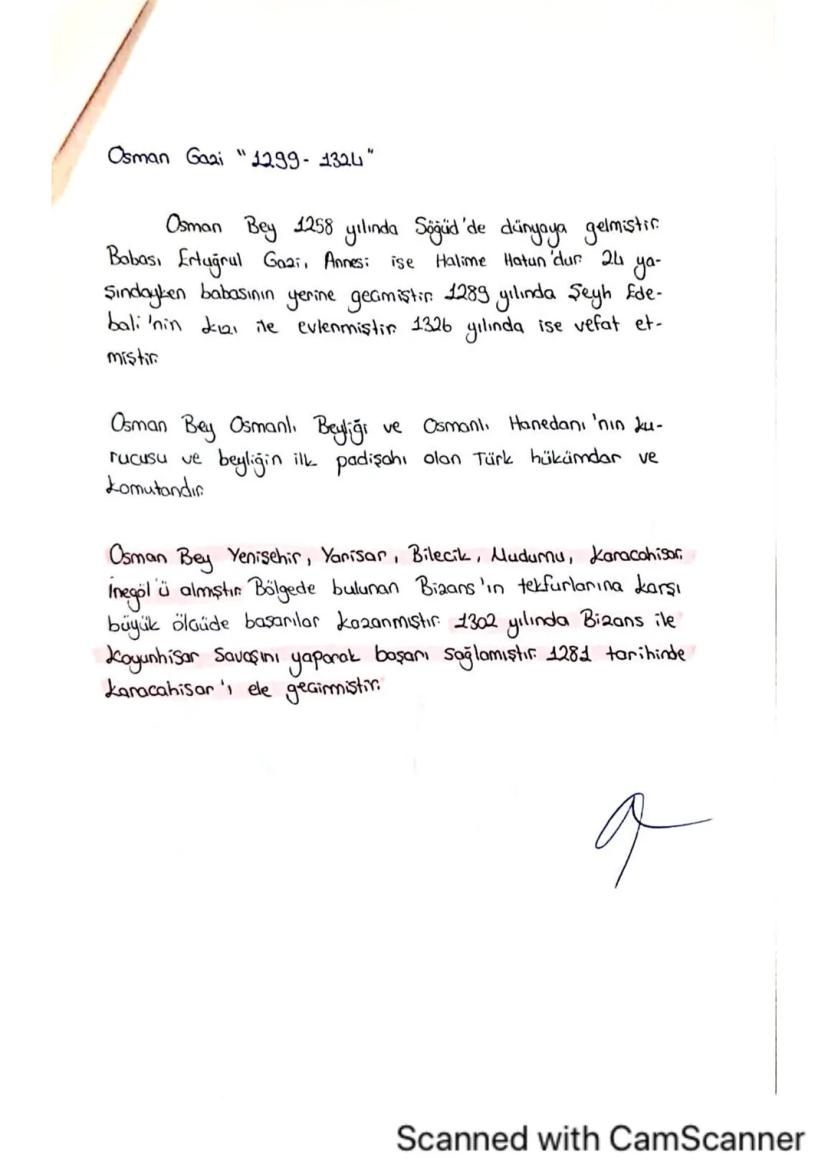 Osman Gazi "1299-1324"
Osman Bey 1258 yılında Söğüd'de dünyaya gelmiştir.
Babası Ertuğrul Gazi, Annesi ise Halime Hatun'dur. 24 ya-
şındayken babasının yerine geçmiştir. 1289 yılında Şeyh Ede-
bali'nin kızı ile evlenmiştir. 1326 yılında ise vefat et-
miştir.
Osman Bey Osmanlı Beyliği ve Osmanlı Hanedanı'nın ku-
rucusu ve beyliğin ilk padişahı olan Türk hükümdar ve
komutandır.
Osman Bey Yenişehir, Yarısar, Bilecik, Mudurnu, Karacahisar,
İnegöl'ü almştır. Bölgede bulunan Bizans'ın tekfurlarına karşı
büyük ölçüde başarılar kazanmıştır. 1302 yılında Bizans ile
Koyunhisar Savaşını yaparak başarı sağlamıştır. 1281 tarihinde
Karacahisar'ı ele geçirmiştir.
Scanned with CamScanner